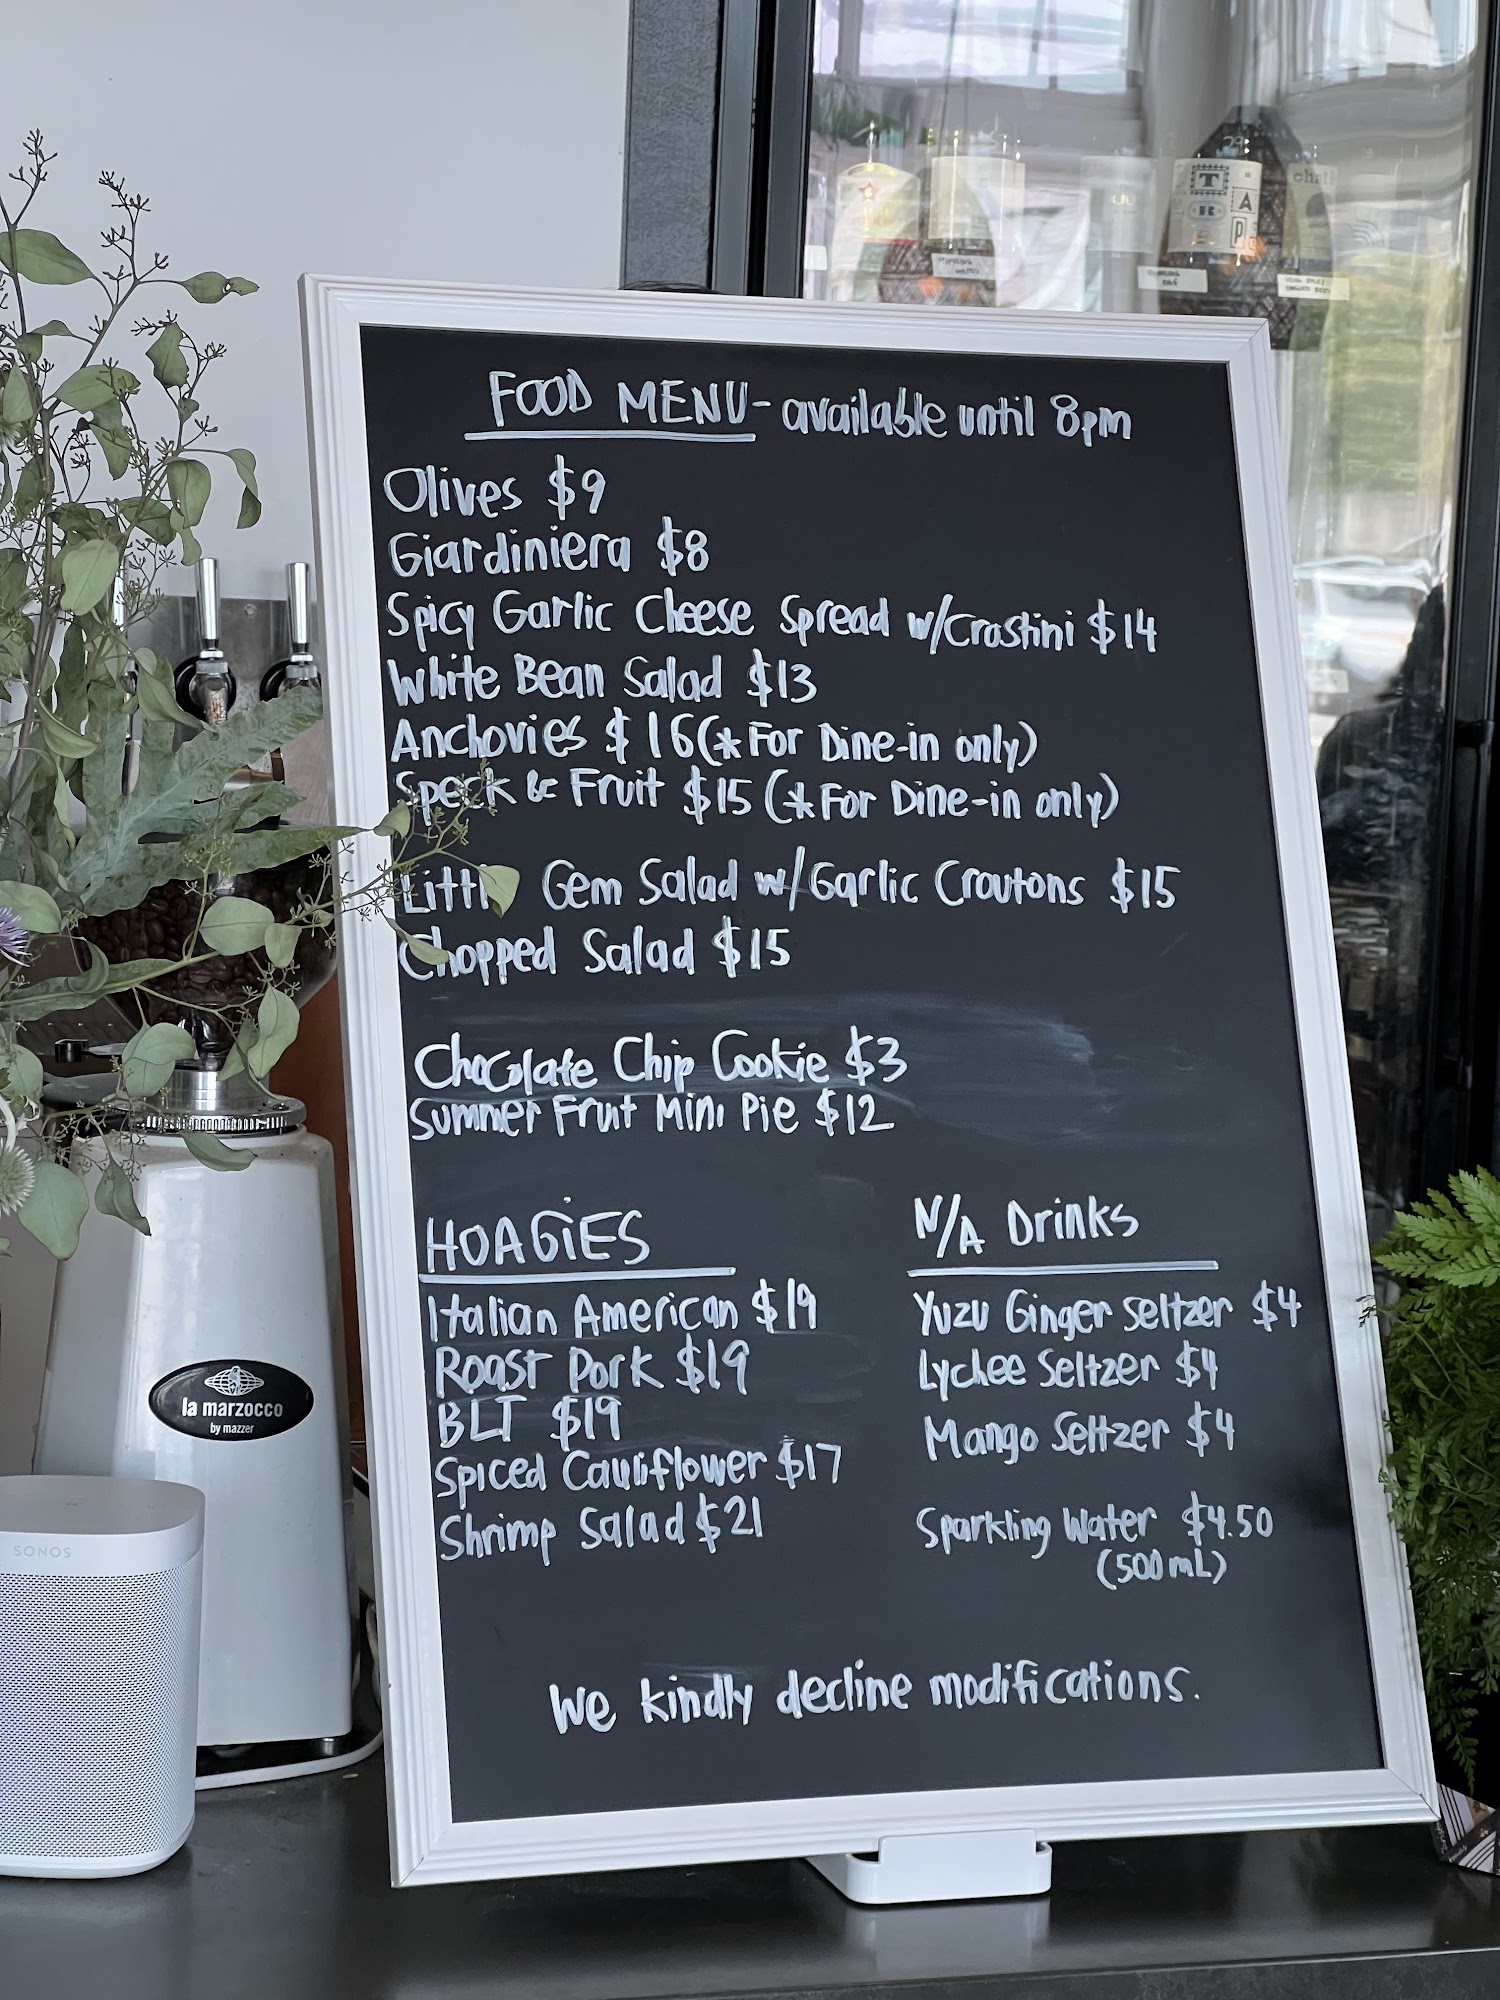 FOOD MENU - available until 8pm
Olives $9
Giardiniera $8
Spicy Garlic Cheese Spread w/Crostini $14
White Bean Salad $13
Anchovies $16 (*For Dine-in only)
Speck & Fruit $15 (*For Dine-in only)
Little Gem Salad w/Garlic Croutons $15
Chopped Salad $15
Chocolate Chip Cookie $3
Summer Fruit Mini Pie $12
HOAGIES
Italian American $19
Roast Pork $19
BLT $19
Spiced Cauliflower $17
Shrimp Salad $21
N/A Drinks
Yuzu Ginger Seltzer $4
Lychee Seltzer $4
Mango Seltzer $4
Sparkling Water $4.50
(500mL)
We kindly decline modifications.
la marzocco
by mazzer
SONOS